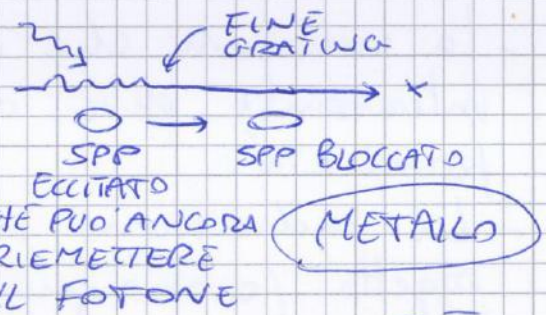 FINE
GRATING
x
SPP
ECCITATO
SPP BLOCCATO
CHE PUO' ANCORA
RIEMETTERE
IL FOTONE
METALLO